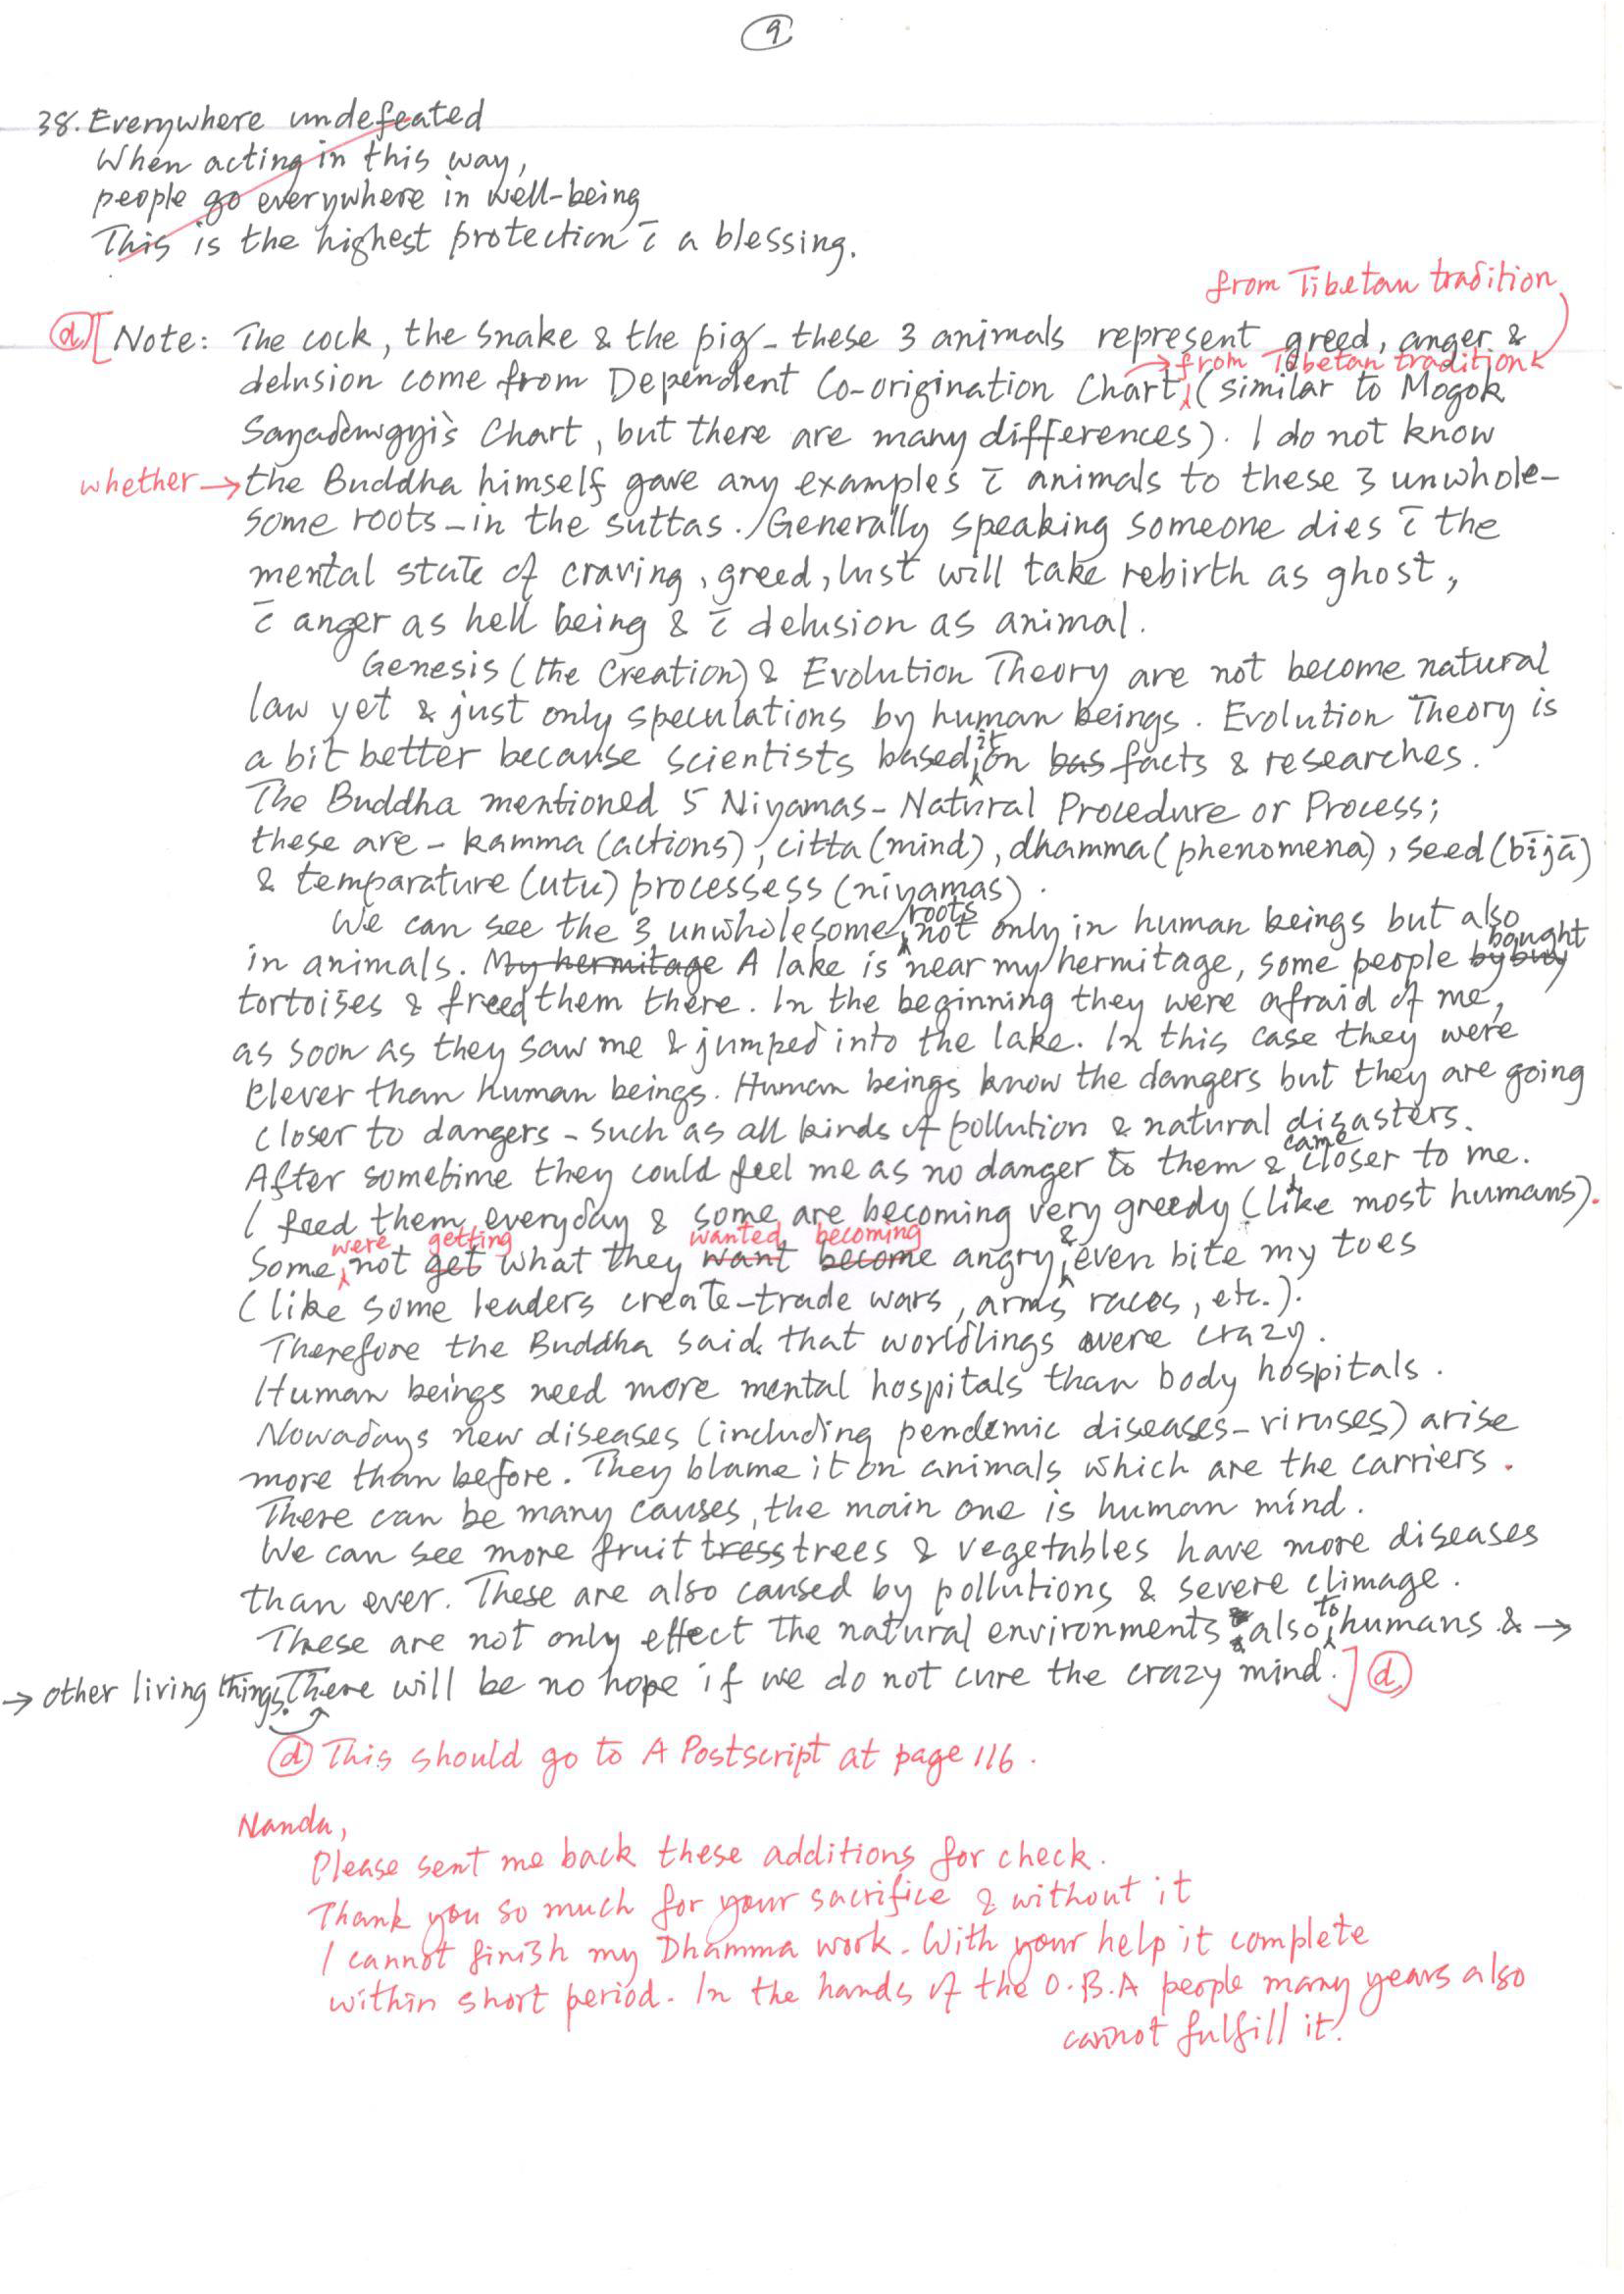 9
38. Everywhere undefeated
When acting in this way,
people go everywhere in well-being
This is the highest protection c̄ a blessing.
from Tibetan tradition
(d) [Note: The cock, the snake & the pig – these 3 animals represent greed, anger &
→ from Tibetan tradition
delusion come from Dependent Co-origination Chart, (similar to Mogok
Sayadawgyi's Chart, but there are many differences). I do not know
whether → the Buddha himself gave any examples c̄ animals to these 3 unwhole-
some roots – in the suttas. / Generally speaking someone dies c̄ the
mental state of craving, greed, lust will take rebirth as ghost,
c̄ anger as hell being & c̄ delusion as animal.
Genesis (the Creation) & Evolution Theory are not become natural
law yet & just only speculations by human beings. Evolution Theory is
a bit better because scientists based it on bas facts & researches.
The Buddha mentioned 5 Niyamas – Natural Procedure or Process;
these are – kamma (actions), citta (mind), dhamma (phenomena), seed (bījā)
& temparature (utu) processess (niyamas).
We can see the 3 unwholesome roots not only in human beings but also
in animals. My hermitage A lake is near my hermitage, some people by buy bought
tortoises & freed them there. In the beginning they were afraid of me,
as soon as they saw me & jumped into the lake. In this case they were
clever than human beings. Human beings know the dangers but they are going
closer to dangers – such as all kinds of pollution & natural disasters.
After sometime they could feel me as no danger to them & came closer to me.
I feed them everyday & some are becoming very greedy (like most humans).
Some were not get getting what they want wanted become becoming angry & even bite my toes
(like some leaders create – trade wars, arms races, etc.).
Therefore the Buddha said that worldlings were crazy.
Human beings need more mental hospitals than body hospitals.
Nowadays new diseases (including pendemic diseases – viruses) arise
more than before. They blame it on animals which are the carriers.
There can be many causes, the main one is human mind.
We can see more fruit tress trees & vegetables have more diseases
than ever. These are also caused by pollutions & severe climage.
These are not only effect the natural environments & also to humans & →
→ other living things. There will be no hope if we do not cure the crazy mind.] (d)
(d) This should go to A Postscript at page 116.
Nanda,
Please sent me back these additions for check.
Thank you so much for your sacrifice & without it
I cannot finish my Dhamma work. With your help it complete
within short period. In the hands of the O.B.A people many years also
cannot fulfill it.